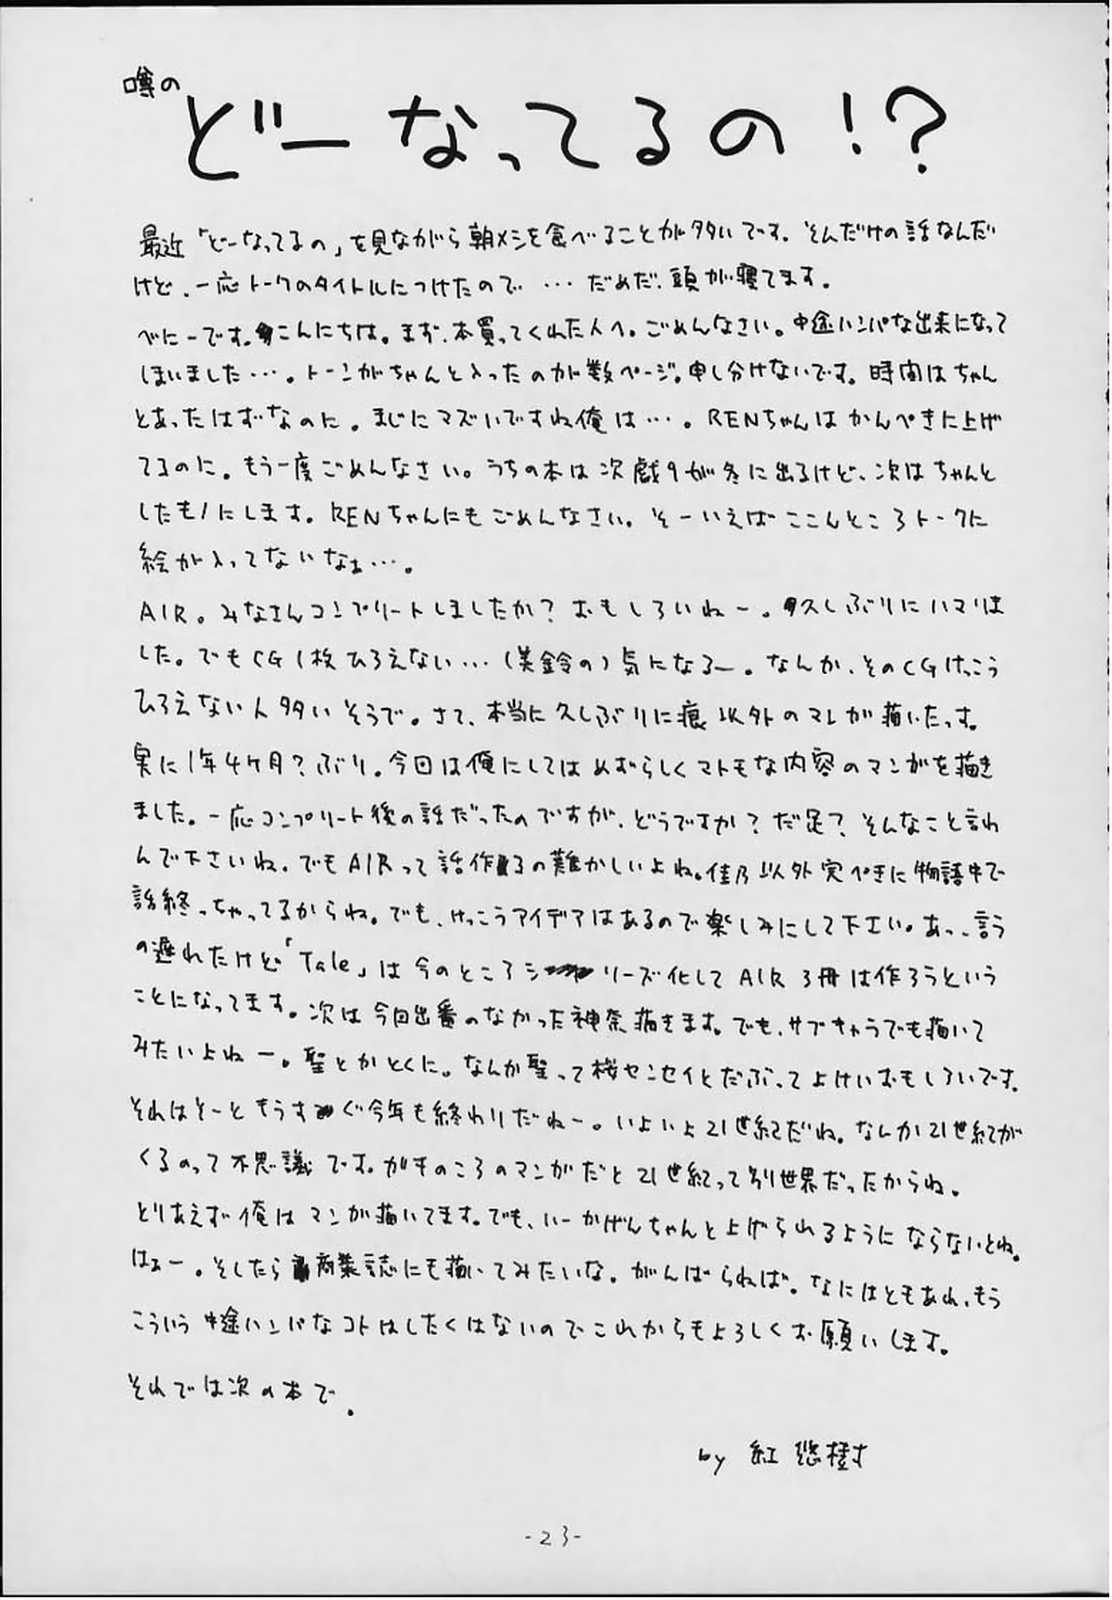 噂の
どーなってるの!?
最近「どーなってるの」を見ながら朝メシを食べることが多いです。そんだけの話なんだ
けど、一応トークのタイトルにつけたので…だめだ、頭が寝てます。
べにーです。こんにちは。まず、本買ってくれた人へ。ごめんなさい。中途ハンパな出来になって
しまいました…。トーンがちゃんと入ったのが数ページ。申し分けないです。時間はちゃん
とあったはずなのに。まじにマズいですね俺は…。RENちゃんはかんぺきに上げ
てるのに。もう一度ごめんなさい。うちの本は次戯9が冬に出るけど、次はちゃんと
したものにします。RENちゃんにもごめんなさい。そーいえばここんところトークに
絵が入ってないなぁ…。
AIR。みなさんコンプリートしましたか?おもしろいねー。久しぶりにハマりま
した。でもCG1枚ひろえない…(美鈴の)気になるー。なんか、そのCGけっこう
ひろえない人多いそうで。さて、本当に久しぶりに痕以外のマンガ描いたっす。
実に1年4ヶ月?ぶり。今回は俺にしてはめずらしくマトモな内容のマンガを描き
ました。一応コンプリート後の話だったのですが、どうですか?だ足?そんなこと言わ
んで下さいね。でもAIRって話作るの難かしいよね。佳乃以外完ぺきに物語中で
話終っちゃってるからね。でも、けっこうアイデアはあるので楽しみにして下さい。あっ、言う
の遅れたけど「Tale」は今のところシリーズ化してAIR3冊は作ろうという
ことになってます。次は今回出番のなかった神奈描きます。でも、サブキャラでも描いて
みたいよねー。聖とかとくに。なんか聖って桜センセイとだぶってよけいおもしろいです。
それはそーともうすぐ今年も終わりだねー。いよいよ21世紀だね。なんか21世紀が
くるのって不思議です。ガキのころのマンガだと21世紀って別世界だったからね。
とりあえず俺はマンガ描いてます。でも、いーかげんちゃんと上げられるようにならないとね。
はぁー。そしたら商業誌にも描いてみたいな。がんばらねば。なにはともあれ、もう
こういう中途ハンパなコトはしたくはないのでこれからもよろしくお願いします。
それでは次の本で。
by 紅 悠樹
-23-